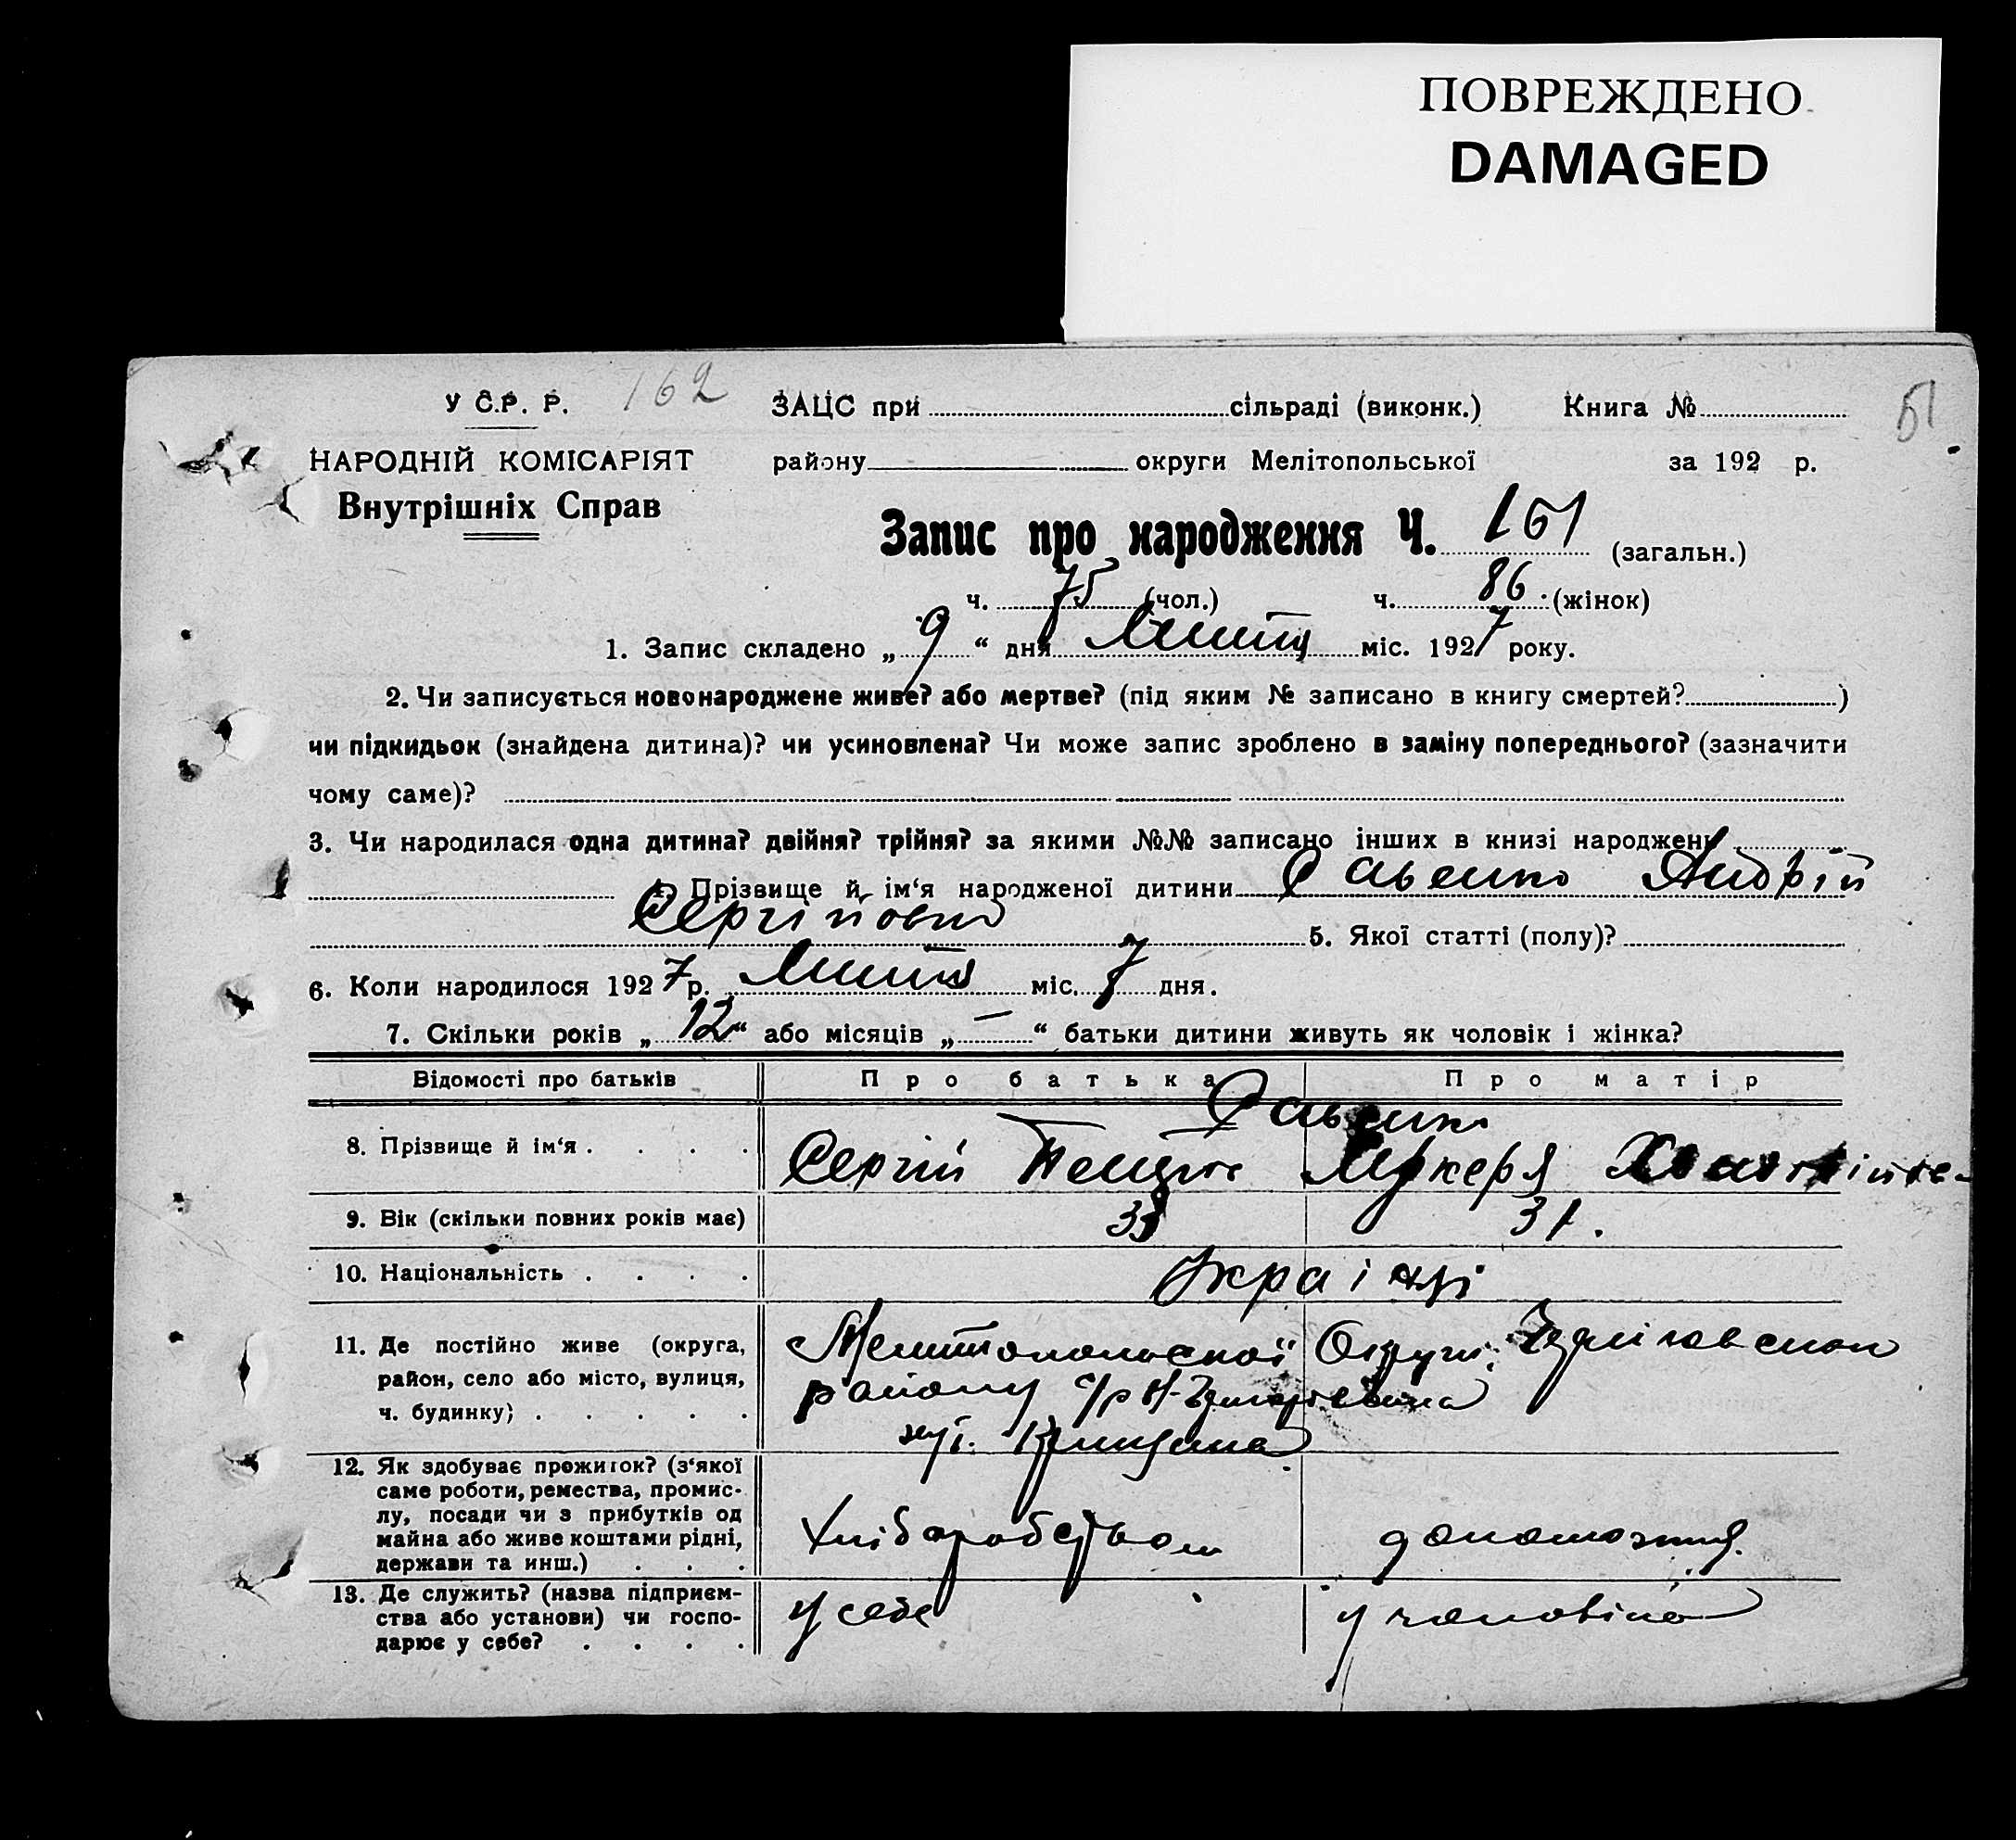 ПОВРЕЖДЕНО
DAMAGED
У С.Р. Р. 162 ЗАЦС при сільраді (виконк.) Книга № 51
НАРОДНІЙ КОМІСАРІЯТ району округи Мелітопольської за 192 р.
Внутрішніх Справ
Запис про народження Ч. 161 (загальн.)
ч. 75 (чол.) ч. 86 (жінок)
1. Запис складено „ 9 “ дня Липця міс. 1927 року.
2. Чи записується новонароджене живе? або мертве? (під яким № записано в книгу смертей? )
чи підкидьок (знайдена дитина)? чи усиновлена? Чи може запис зроблено в заміну попереднього? (зазначити
чому саме)?
3. Чи народилася одна дитина? двійня? трійня? за якими №№ записано інших в книзі народжень
Прізвище й ім‘я народженої дитини Савенко Андрій
Сергійович
5. Якої статті (полу)?
6. Коли народилося 1927 р. Липця міс. 7 дня.
7. Скільки років „ 12 “ або місяців „ — “ батьки дитини живуть як чоловік і жінка?
Відомості про батьків Про батька Про матір
Савенки
8. Прізвище й ім‘я . . . . Сергій Мокеря
9. Вік (скільки повних років має) 31.
10. Національність . . . . Українці
11. Де постійно живе (округа, Мелитопольської Округи,
район, село або місто, вулиця, району с/р
ч. будинку) . . . . . хут.
12. Як здобуває прожиток? (з‘якої
саме роботи, ремества, промис-
лу, посади чи з прибутків од
майна або живе коштами рідні, Хліборобством допомозниця
держави та инш.) . . .
13. Де служить? (назва підприєм-
ства або установи) чи госпо- у себе у чоловіка
дарює у себе? . . . .